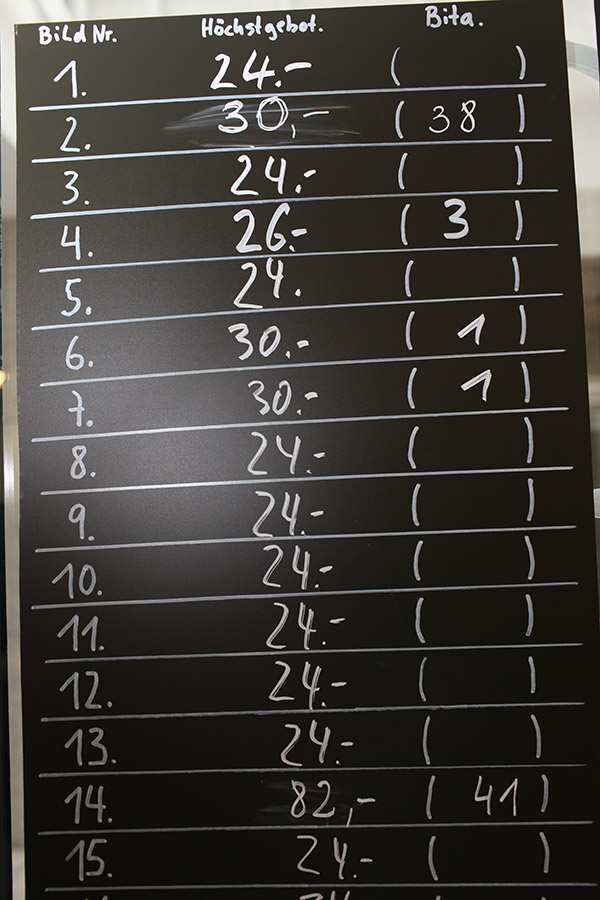 Bild Nr. Höchstgebot. Bita.
1. 24.- ( )
2. 30,- ( 38 )
3. 24.- ( )
4. 26.- ( 3 )
5. 24. ( )
6. 30.- ( 1 )
7. 30.- ( 1 )
8. 24.- ( )
9. 24.- ( )
10. 24.- ( )
11. 24.- ( )
12. 24.- ( )
13. 24.- ( )
14. 82,- ( 41 )
15. 24.- ( )